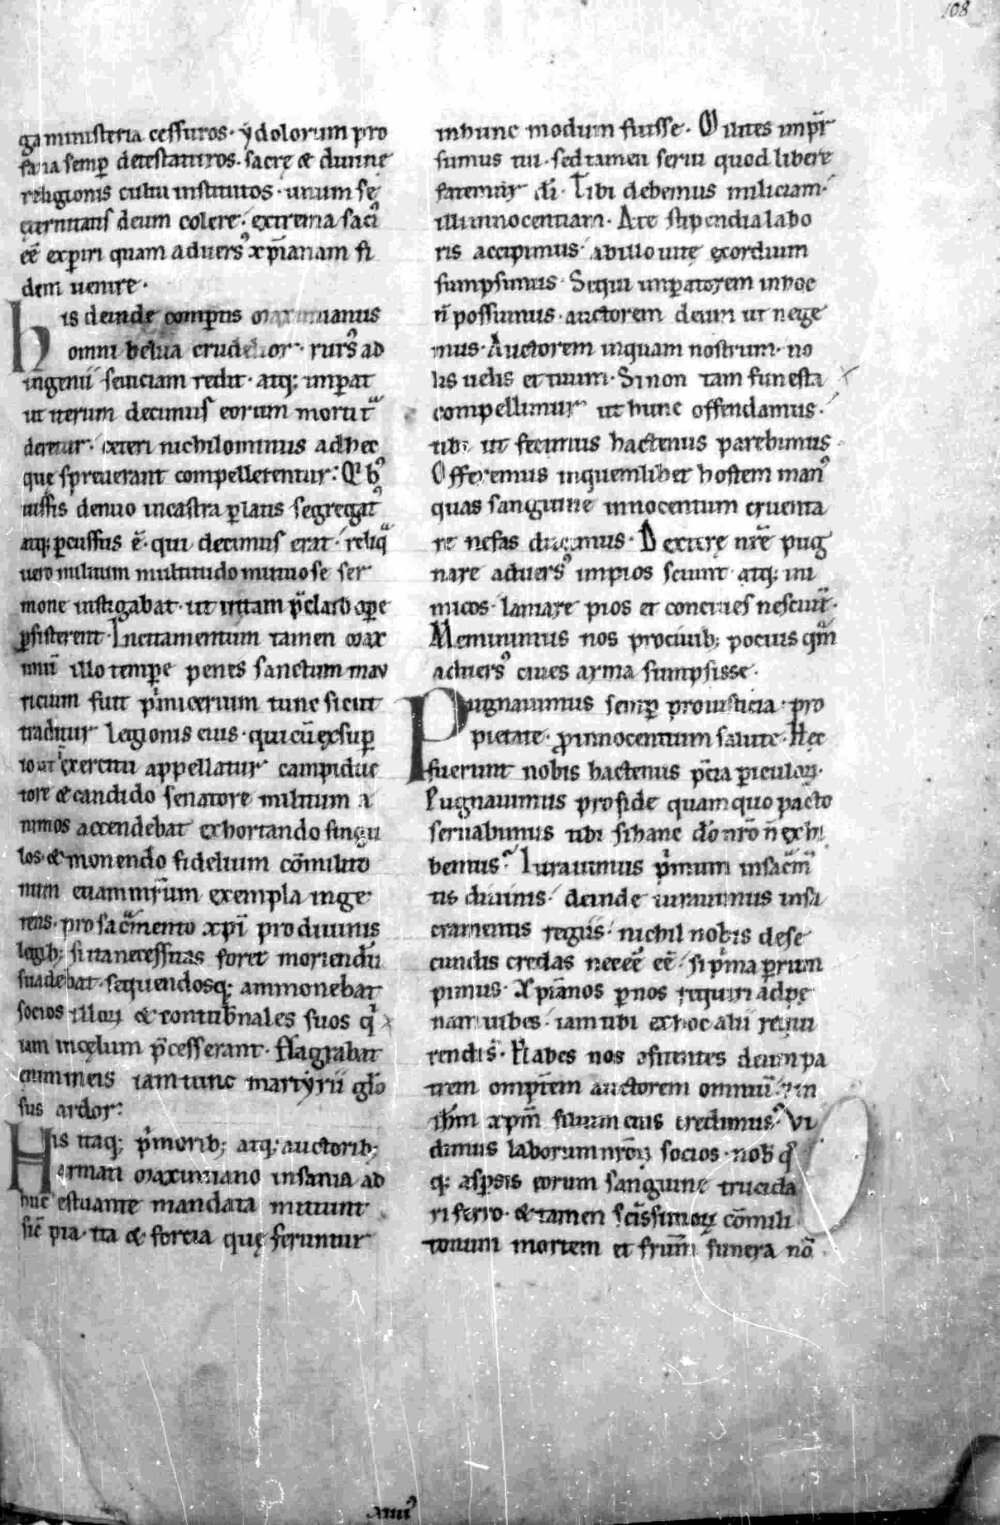 108
ga ministeria cessuros · ydolorum pro
fana semp̄ detestaturos · sacrę & diuinę
religionis cultu institutos · unum sę
ęternitatis deum colere · extrema saci᷒
eē experiri quam aduers᷒ xp̄ianam fi
dem uenire ·
his deinde comp̄tis maximianus
omni belua crudelior · rurs᷒ ad
ingenii seuiciam redit · atq; imperat
ut iterum decimus eorum morti
daretur · ceteri nichilominus ad hec
quę spreuerant compellerentur : Q'b᷒
iussis denuo in castra p̱latis segregat᷒
atq; p̱cussus ē · qui decimus erat · reliq̄
uero militum multitudo mutuo se ser
mone instigabat · ut in tam p̄claro op̱e
p̱sisterent · Incitamentum tamen max
imū illo tempore penes sanctum mau
ricium fuit p'micerium tunc sicut
traditur legionis eius · qui cū exsup̱
io ut exercitu appellatur campiduc
tore & candido senatore militum a
nimos accendebat exhortando singu
los · & monendo fidelium cōmilito
num etiam martyrum exempla inge
rens · pro sac̄mento xp̄i pro diuinis
legib; si ita necessitas foret moriendū
suadebat · sequendosq; ammonebat
socios illos & contub̄nales suos q'
iam in cęlum p̄cesserant · Flagrabat
enim in eis iam tunc martyrii glō
sus ardor :
His itaq; p'morib; atq; auctorib;
firmati maximiano insania ad
huc estuante mandata mittunt
sic̄ pia · ita & forcia quę feruntur
in hunc modum fuisse · Milites imp̄r
sumus tui · sed tamen serui quod libere
fatemur dī · Tibi debemus miliciam ·
illi innocentiam · A te stipendia labo
ris accipimus · ab illo uitę exordium
sumpsimus · Sequi imperatorem in hoc
n̄ possumus · auctorem deum ut nege
mus · Auctorem inquam nostrum · no
lis uelis et tuum · Si non tam funesta
compellimur ut hunc offendamus ·
tibi ut fecimus hactenus parebimus
Offeremus in quemlibet hostem man᷒
quas sanguine innocentum cruenta
re nefas ducimus · Dexterę nr̄e pug
nare aduers᷒ impios sciunt · atq; ini
micos · laniare pios et conciues nesciunt ·
Meminimus nos pro ciuib; pocius qm̄
aduers᷒ ciues arma sumpsisse ·
Pugnauimus semp̱ pro iusticia · pro
pietate · pro innocentium salute · Hec
fuerunt nobis hactenus p̄cia p̱iculoꝝ ·
Pugnauimus pro fide quam quo pacto
seruabimus tibi si hanc dō nr̄o n̄ exhi
bemus? Iurauimus p'mum in sac̄m̄
tis diuinis · deinde iurauimus in sa
cramentis regiis · nichil nobis de se
cundis credas neceē eē · si p'ma p̱rum
pimus · Xp̄ianos p̱ nos requiri ad pę
nam iubes · iam tibi ex hoc alii requi
rendi s̄ · Habes nos ɔfitentes deum pa
trem omp̄tem auctorem omniū · & in
ih̄m xp̄m filium eius credimus · Vi
dimus laborum nr̄oꝝ socios · nob̄ q'
q; asp̱sis eorum sanguine trucida
ri ferro · & tamen sc̄issimoꝝ cōmili
tonum mortem et fr̄um funera nō
xiiii᷒